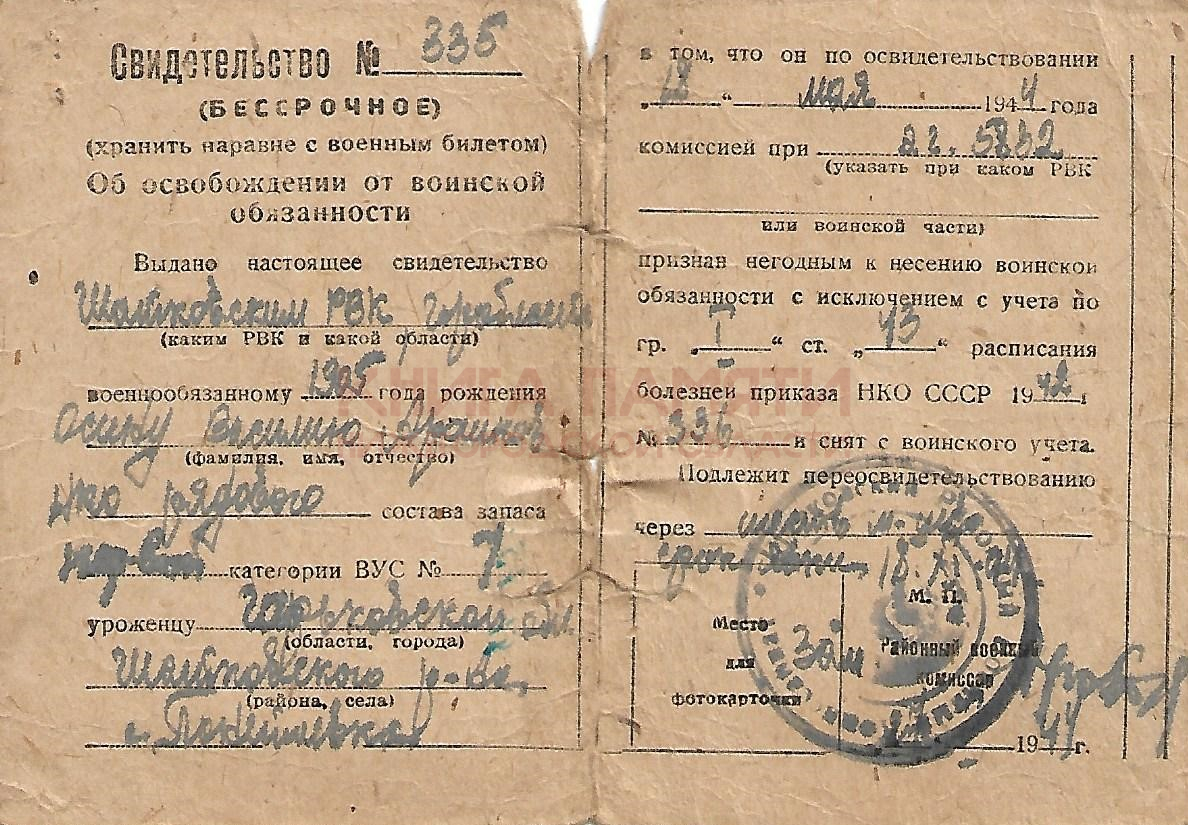 Свидетельство № 335
(БЕССРОЧНОЕ)
(хранить наравне с военным билетом)
Об освобождении от воинской
обязанности
Выдано настоящее свидетельство
РВК
(каким РВК и какой области)
военнообязанному 1905 года рождения
Осину Василию
(фамилия, имя, отчество)
рядового составa запаса
категории ВУС № 7
уроженцу Горьковской обл.
(области, города)
Шатковского р-на,
(района, села)
с.
в том, что он по освидетельствовании
„18“ мая 1944 года
комиссией при 5832
(указать при каком РВК
или воинской части)
признан негодным к несению воинской
обязанности с исключением с учета по
гр. „I“ ст. „43“ расписания
болезней приказа НКО СССР 1942 г
№ 336 и снят с воинского учета.
Подлежит переосвидетельствованию
через
срок 18.XI.44
Место
для
фотокарточки
М. П.
Зам Районный военный
комиссар
1944 г.
КНИГА ПАМЯТИ